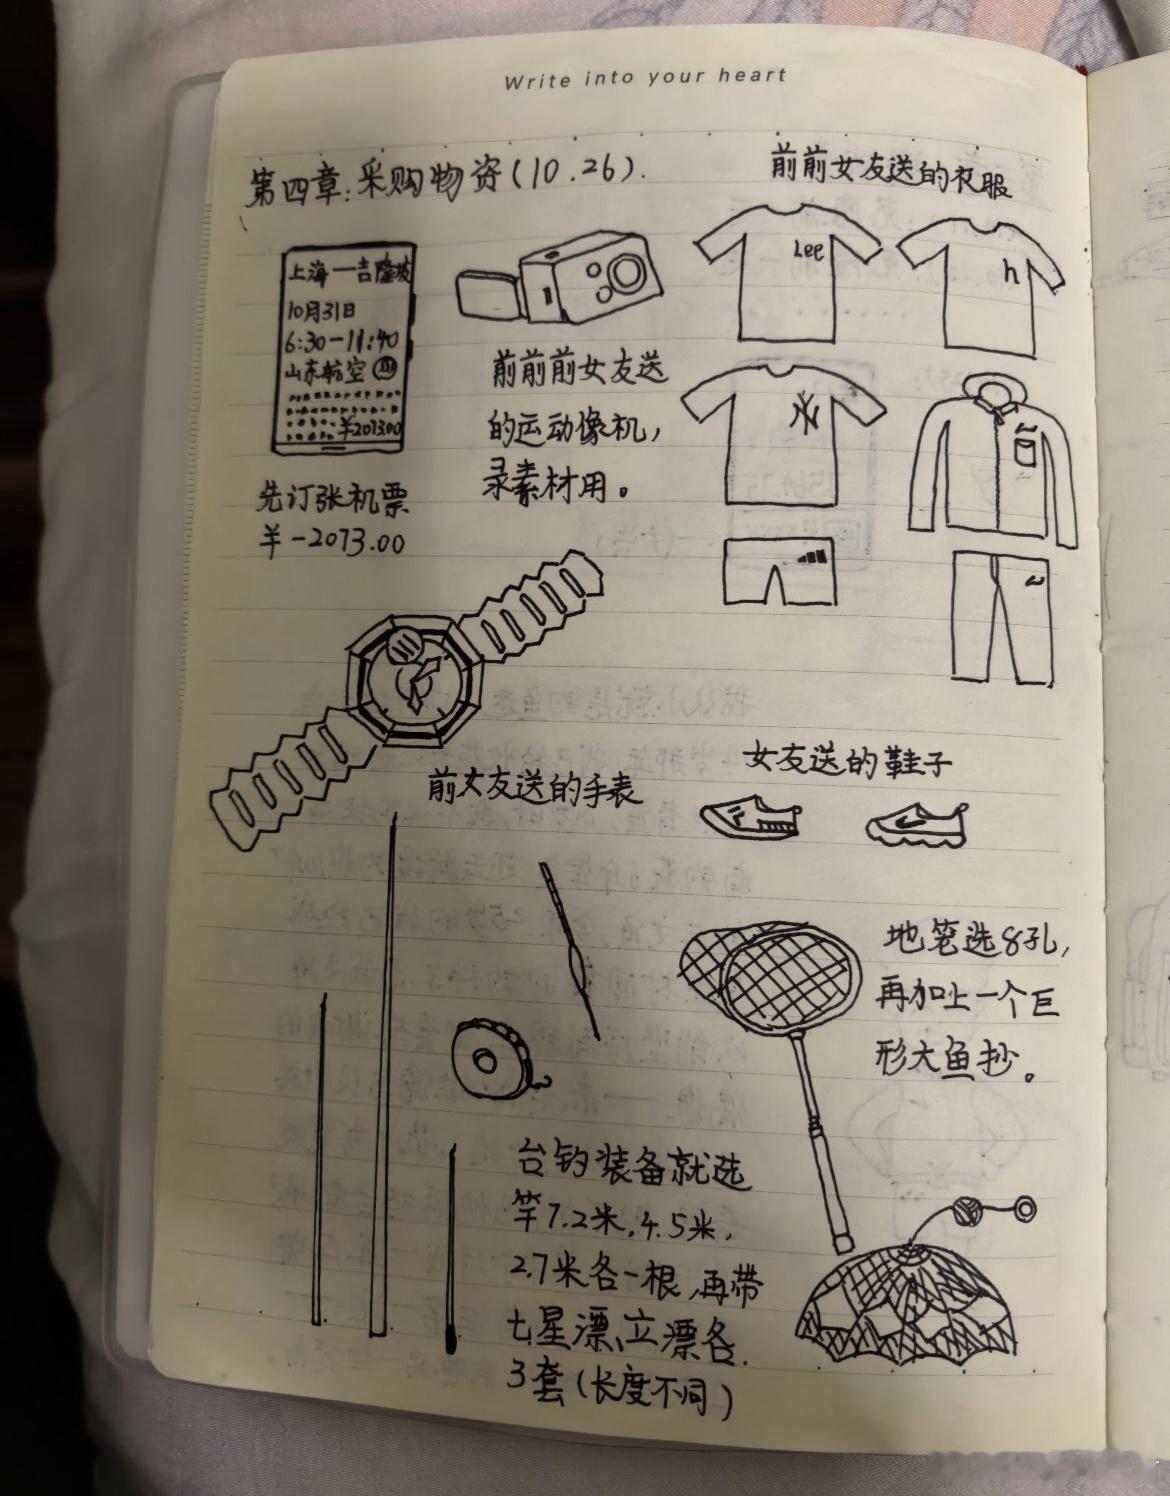 Write into your heart
第四章:采购物资(10.26).
上海一吉隆坡
10月31日
6:30-11:40
山东航空
¥2073.00
先订张机票
¥-2073.00
前前前女友送
的运动像机,
录素材用。
前前女友送的衣服
Lee
h
NY
前女友送的手表
女友送的鞋子
地笼选8孔,
再加上一个巨
形大鱼抄。
台钓装备就选
竿7.2米,4.5米,
2.7米各一根,再带
七星漂、立漂各
3套(长度不同)